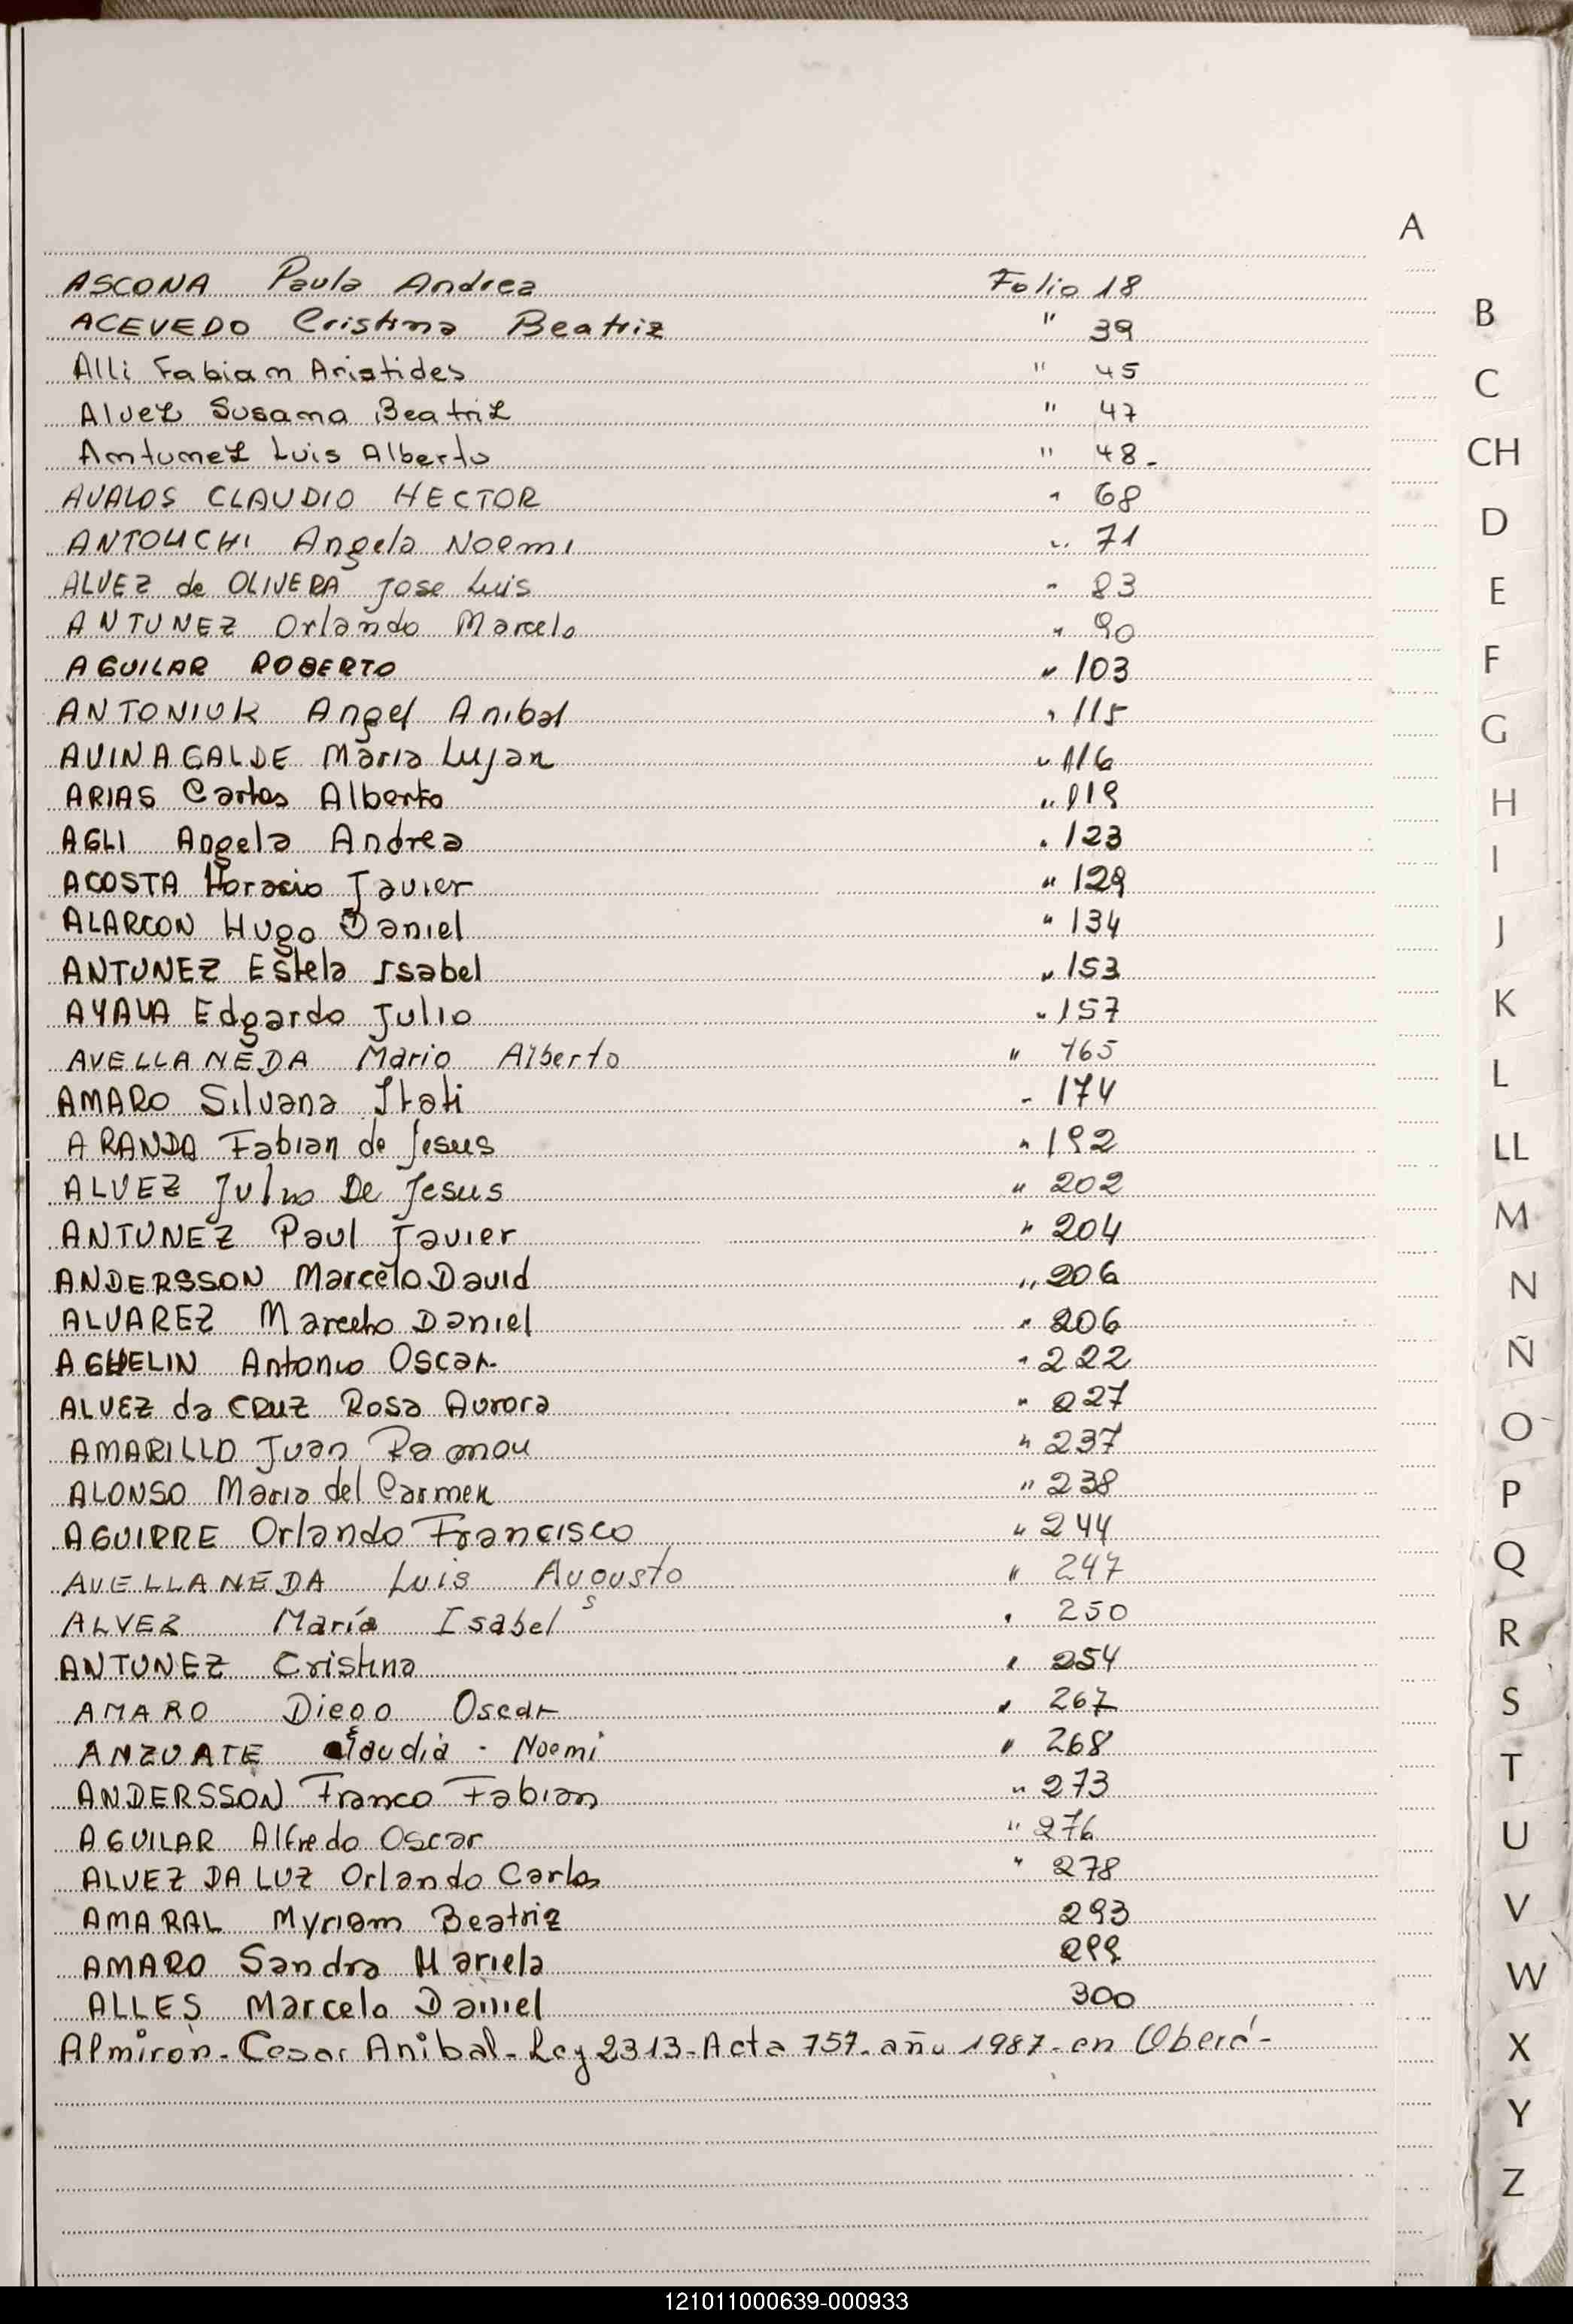 A
ASCONA Paula Andrea Folio 18
ACEVEDO Cristina Beatriz " 39
Alli Fabian Aristides " 45
Alvez Susana Beatriz " 47
Antunez Luis Alberto " 48-
AVALOS CLAUDIO HECTOR " 68
ANTOUCHI Angela Noemi " 71
ALVEZ de OLIVERA Jose Luis " 83
ANTUNEZ Orlando Marcelo " 90
AGUILAR ROBERTO " 103
ANTONIUK Angel Anibal " 115
AVINAGALDE Maria Lujan " 116
ARIAS Carlos Alberto " 119
AGLI Angela Andrea " 123
ACOSTA Horacio Javier " 129
ALARCON Hugo Daniel " 134
ANTUNEZ Estela Isabel " 153
AYALA Edgardo Julio " 157
AVELLANEDA Mario Alberto " 165
AMARO Silvana Itati " 174
ARANDA Fabian de Jesus " 192
ALVEZ Julio De Jesus " 202
ANTUNEZ Paul Javier " 204
ANDERSSON Marcelo David " 206
ALVAREZ Marcelo Daniel " 206
AGUELIN Antonio Oscar " 222
ALVEZ da CRUZ Rosa Aurora " 227
AMARILLO Juan Ramon " 237
ALONSO Maria del Carmen " 238
AGUIRRE Orlando Francisco " 244
AVELLANEDA Luis Augusto " 247
ALVEZ María Isabel " 250
ANTUNEZ Cristina " 254
AMARO Diego Oscar " 267
ANZUATE Claudia - Noemi " 268
ANDERSSON Franco Fabian " 273
AGUILAR Alfredo Oscar " 276
ALVEZ DA LUZ Orlando Carlos " 278
AMARAL Myriam Beatriz 293
AMARO Sandra Mariela 299
ALLES Marcelo Daniel 300
Almirón - Cesar Anibal - Ley 2313 - Acta 757 - año 1987 - en Oberá -
B
C
CH
D
E
F
G
H
I
J
K
L
LL
M
N
Ñ
O
P
Q
R
S
T
U
V
W
X
Y
Z
121011000639-000933